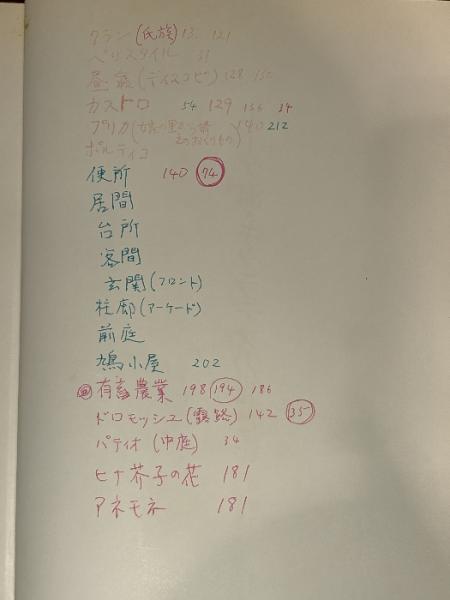 クラン(氏族) 13 121
ペリスタイル 31
昼食(ディスコピ) 128 130
カストロ 54 129 136 34
プリカ(娘の里から婿 140 212
ポルティコ
便所 140 74
居間
台所
客間
玄関(フロント)
柱廊(アーケード)
前庭
鳩小屋 202
有畜農業 198 194 186
ドロモッシュ(露路) 142 35
パティオ(中庭) 34
ヒナ芥子の花 181
アネモネ 181